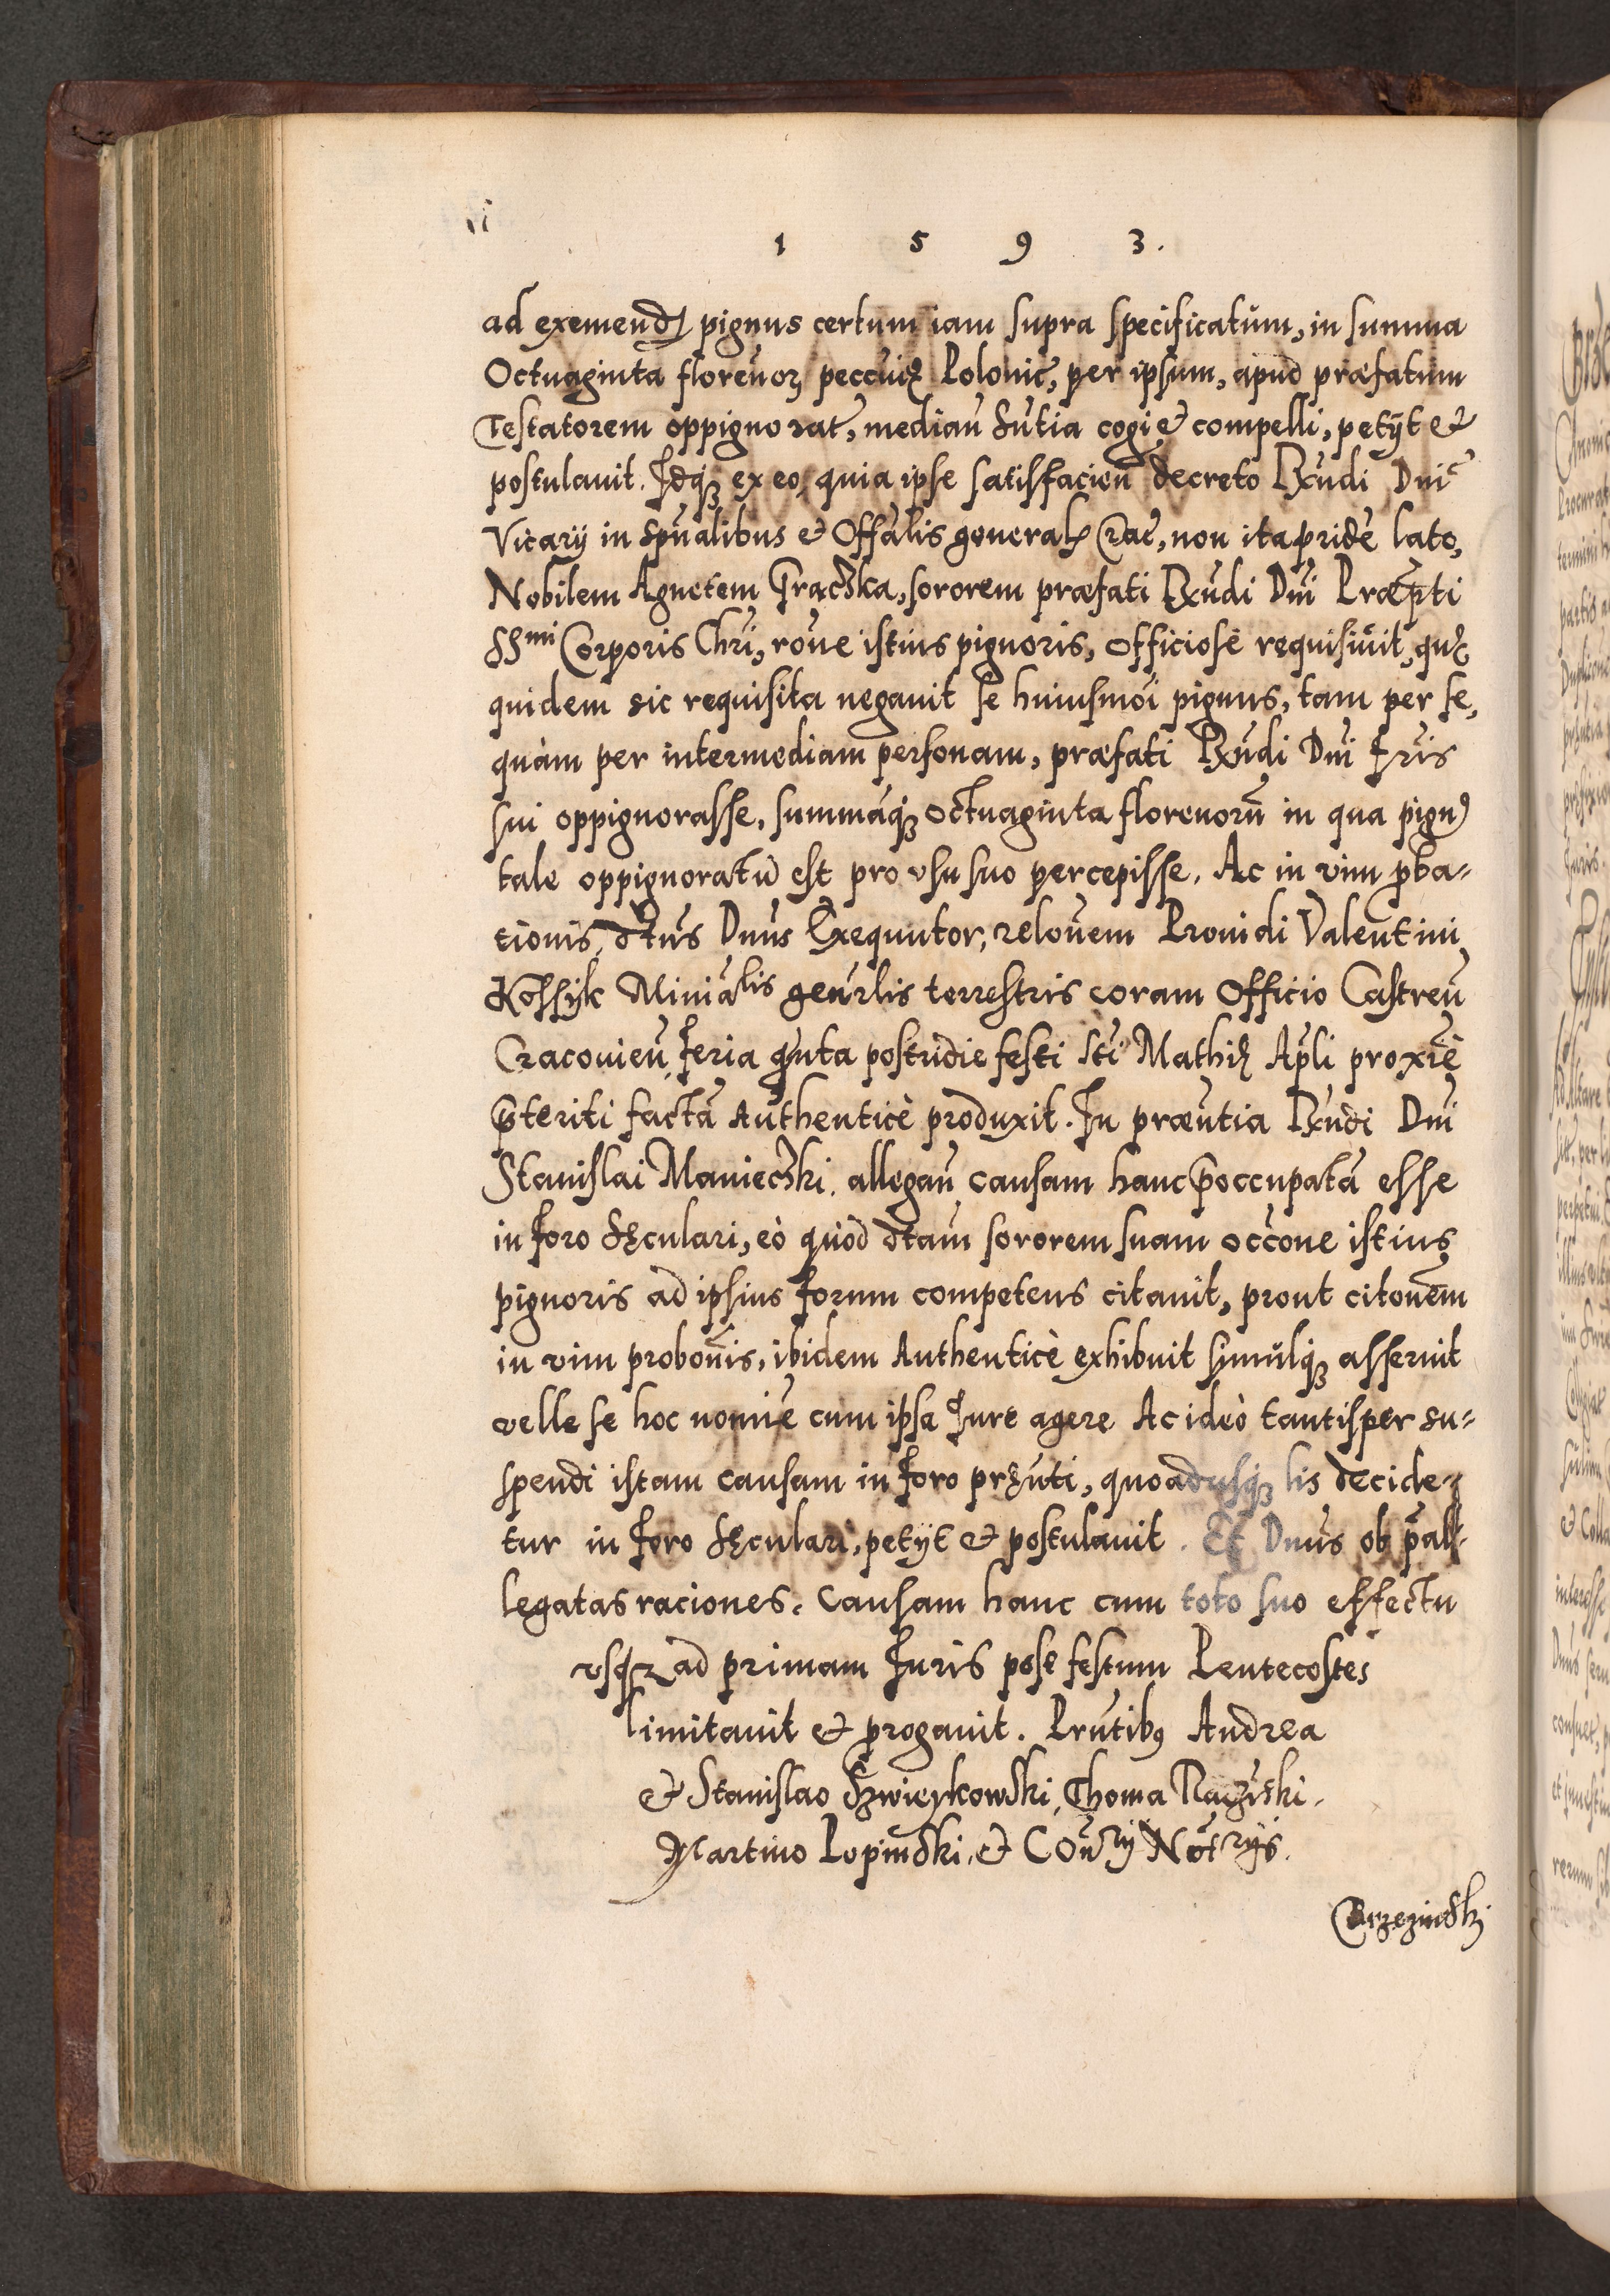 1 5 9 3.
ad exemendũ pignus certum iam supra specificatum, in summa
Octuaginta florenoꝝ peccuię Polonic̃, per ipsum, apud præfatum
Testatorem oppignorat̃, median̄ Sñtia cogi et compelli, petijt et
postulauit. Idqꝫ ex eo, quia ipse satisfacien̄ decreto Rx̃ndi Dni
Vicarij in Spũalibus et Offãlis general Crac̃, non ita pridẽ lato,
Nobilem Agnetem Gracżka, sororem præfati Rx̃ndi Dñi Præpti
SSmi Corporis Chri, rõne istius pignoris, officiosè requisiuit, quę
quidem sic requisita negauit se huiusmõi pignus, tam per se,
quàm per intermediam personam, præfati Rx̃ndi Dñi Fr̃is
sui oppignorasse, summãqꝫ octuaginta florenorũ in qua pignꝰ
tale oppignoratũ est pro vsu suo percepisse. Ac in vim ꝓba-
tionis, dt̃us Dnus Exequutor, relõnem Prouidi Valentini
Kossyk Miniãlis geñrlis terrestris coram Officio Castren̄
Cracouien̄ Feria qũta postridie festi Sti Mathię Ap̃li proxĩe
p̃teriti factã Authenticè produxit. In præñtia Rx̃ndi Dñi
Stanislai Maniecżki, allegan̄ causam hanc p̃occupatã esse
in foro Sęculari, eò quòd dt̃am sororem suam occc̃one istius
pignoris ad ipsius forum competens citauit, prout citõnem
in vim probõnis, ibidem Authenticè exhibuit simulqꝫ asseruit
velle se hoc nomĩe cum ipsa Jure agere Ac ideò tantisper su-
spendi istam causam in foro pręñti, quoadusqꝫ lis decide-
tur in foro Sęculari, petijt et postulauit. Et Dnus ob p̃al-
legatas raciones. Causam hanc cum toto suo effectu
vsqꝫ ad primam Juris post festum Pentecostes
limitauit et ꝓrogauit. Prñtibꝰ Andrea
et Stanislao Szwieykowski, Thoma Raczinski,
Martino Lopinski, et Coñrij Notrijs.
Brzezinski